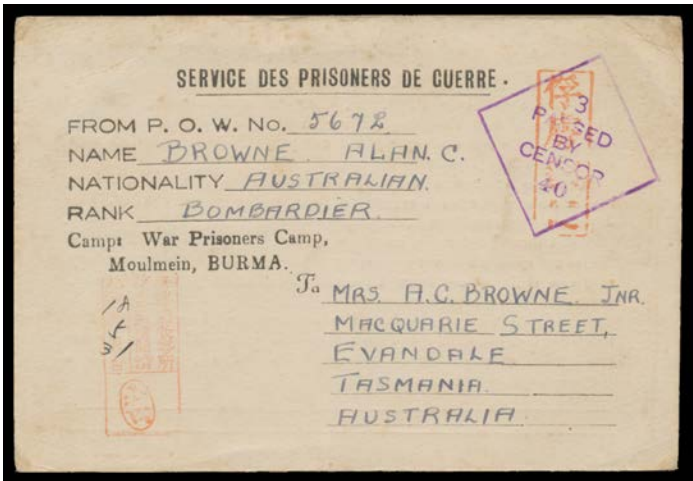 SERVICE DES PRISONERS DE GUERRE.
FROM P. O. W. No. 5672
NAME BROWNE ALAN. C.
NATIONALITY AUSTRALIAN.
RANK BOMBARDIER.
Camp: War Prisoners Camp,
Moulmein, BURMA.
3
PASSED
BY
CENSOR
40
To MRS. A.C. BROWNE JNR.
MACQUARIE STREET,
EVANDALE
TASMANIA.
AUSTRALIA.
18
5
31